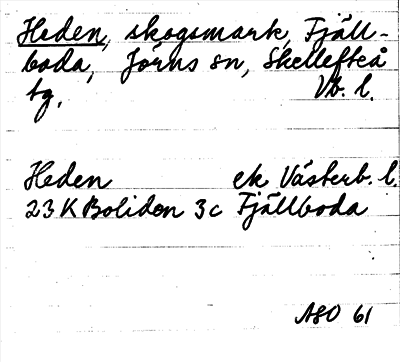 Heden, skogsmark, Fjäll-
boda, Jörns sn, Skellefteå
tg. Vb. l.
Heden ek Västerb. l.
23K Boliden 3c Fjällboda
ASO 61